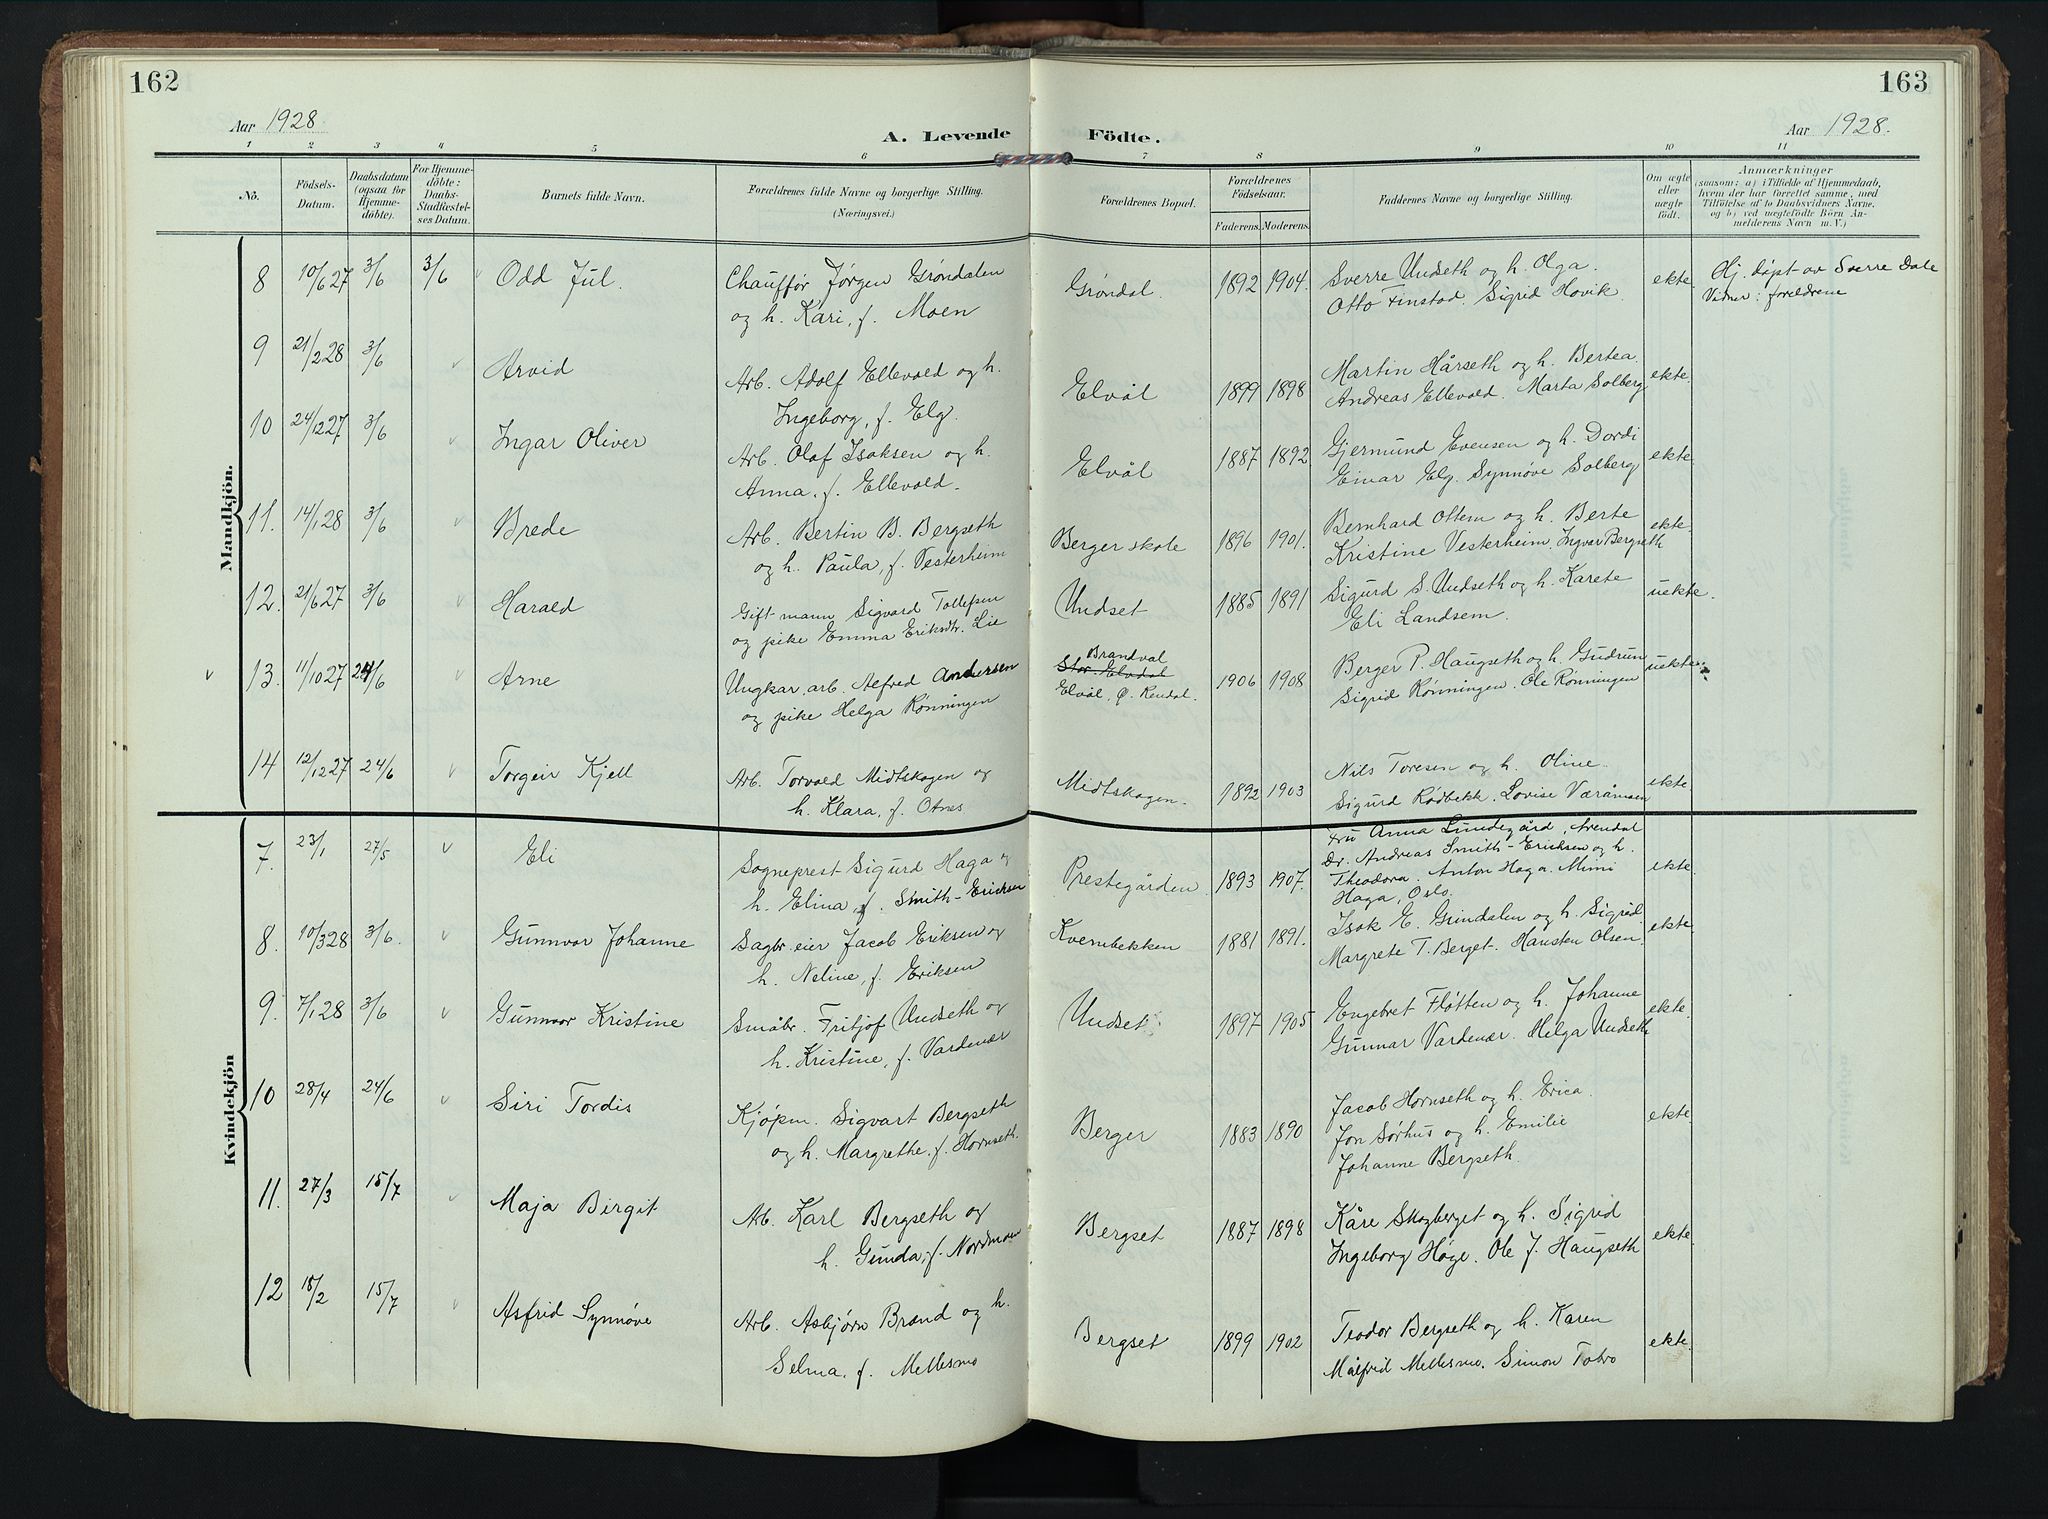 162
163
Aar 1928
A. Levende Födte.
Aar 1928.
1 2 3 4 5 6 7 8 9 10 11
No.
Födsels-
Datum.
Daabsdatum
(ogsaa for
Hjemme-
döbte).
For Hjemme-
döbte:
Daabs-
Stadfæstel-
ses Datum.
Barnets fulde Navn.
Forældrenes fulde Navne og borgerlige Stilling.
(Næringsvei.)
Forældrenes Bopæl.
Forældrenes
Födselsaar.
Faderens. Moderens.
Faddernes Navne og borgerlige Stilling.
Om ægte
eller
uægte
födt.
Anmærkninger
(saasom: a) i Tilfælde af Hjemmedaab,
hvem der har forrettet samme, med
Tilföielse af to Daabsvidners Navne,
og b) ved uægtefödte Börn An-
melderens Navn m. V.)
Mandkjön.
8 10/6 27 3/6 3/6 Odd Jul. Chauffør Jørgen Grøndalen Grøndal. 1892 1904. Sverre Undseth og h. Olga. ekte Hj. døpt av Sverre Dale
og h. Kari, f. Moen Otto Finstad. Sigrid Hovik. Vitner: foreldrene
9 21/2 28 3/6 Arvid Arb. Adolf Ellevold og h. Elvål 1899 1898 Martin Hårseth og h. Bertea. ekte
Ingeborg, f. Elg. Andreas Ellevold. Marta Solberg
10 24/12 27 3/6 Ingar Oliver Arb. Olaf Isaksen og h. Elvål 1887 1892 Gjermund Evensen og h. Dordi ekte
Anna, f. Ellevold. Einar Elg. Synnøve Solberg
11. 14/1 28 3/6 Brede Arb. Bertin B. Bergseth Berger skole 1896 1901. Bernhard Ottem og h. Berte ekte
og h. Paula, f. Vesterheim Kristine Vesterheim. Ingvar Bergseth
12. 21/6 27 3/6 Harald Gift mann Sigvard Tollefsen Undset 1885 1891 Sigurd S. Undseth og h. Karete uekte.
og pike Emma Eriksdtr. Lie Eli Landsem.
13. 11/10 27 24/6 Arne Ungkar, arb. Alfred Andersen Brandval 1906 1908 Berger P. Haugseth og h. Gudrun uekte
og pike Helga Rønningen Stor-Elvdal Sigrid Rønningen. Ole Rønningen
Elvål, Ø. Rendal.
14 12/12 27 24/6 Torgeir Kjell Arb. Torvald Midtskogen og Midtskogen. 1892 1903 Nils Toresen og h. Oline. ekte
h. Klara, f. Otnes Sigurd Rødbekk. Lovise Væråmoen
Kvindekjön
7. 23/1 27/5 Eli Sogneprest Sigurd Haga og Prestegården 1893 1907. Fru Anna Lundegård, Arendal ekte
h. Elina, f. Smith-Erichsen Dr. Andreas Smith-Erichsen og h.
Theodora. Anton Haga. Mimi
Haga, Oslo.
8. 10/3 28 3/6. Gunnvor Johanne Sagbr. eier Jacob Eriksen og Kvernbekken 1881 1891. Isak E. Grindalen og h. Sigrid. ekte
h. Neline, f. Eriksen Margrete T. Berget. Hansten Olsen.
9. 7/1 28 3/6 Gunnvor Kristine Småbr. Fritjof Undseth og Undset 1897 1905 Engebret Fløtten og h. Johanne ekte
h. Kristine, f. Vardenær Gunnar Vardenær. Helga Undseth
10 28/4 24/6 Siri Tordis Kjøpm. Sigvart Bergseth Berger 1883 1890 Jacob Hornseth og h. Erica. ekte
og h. Margrethe, f. Hornseth. Jon Sørhus og h. Emilie
Johanne Bergseth.
11. 27/3 15/7 Maja Birgit Arb. Karl Bergseth og Bergset 1887 1898 Kåre Skogberget og h. Sigrid ekte
h. Gunda, f. Nordmoen Ingeborg Høge. Ole J. Haugseth
12 18/2 15/7 Asfrid Synnøve Arb. Asbjørn Brænd og h. Bergset 1899 1902 Teodor Bergseth og h. Karen ekte
Selma, f. Mellesmo Målfrid Mellesmo. Simon Tobro